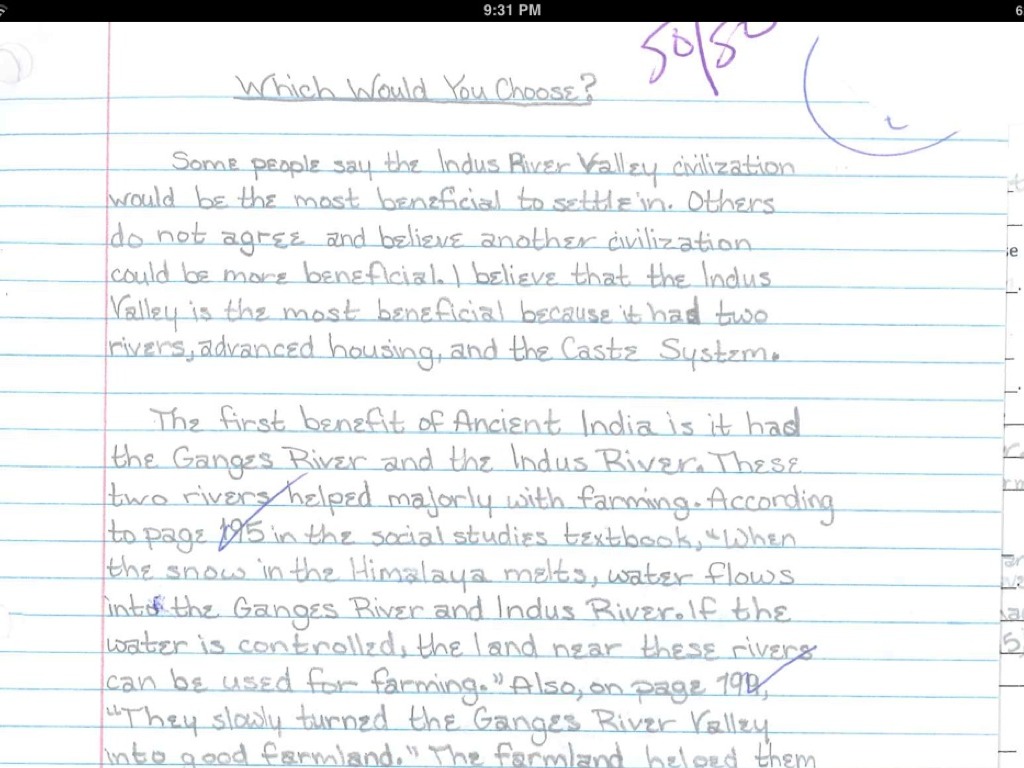 9:31 PM
6
50/50
Which Would You Choose?
Some people say the Indus River Valley civilization
would be the most beneficial to settle in. Others
do not agree and believe another civilization
could be more beneficial. I believe that the Indus
Valley is the most beneficial because it had two
rivers, advanced housing, and the Caste System.
The first benefit of Ancient India is it had
the Ganges River and the Indus River. These
two rivers helped majorly with farming. According
to page 195 in the social studies textbook, "When
the snow in the Himalaya melts, water flows
into the Ganges River and Indus River. If the
water is controlled, the land near these rivers
can be used for farming." Also, on page 199,
"They slowly turned the Ganges River Valley
into good farmland." The farmland helped them